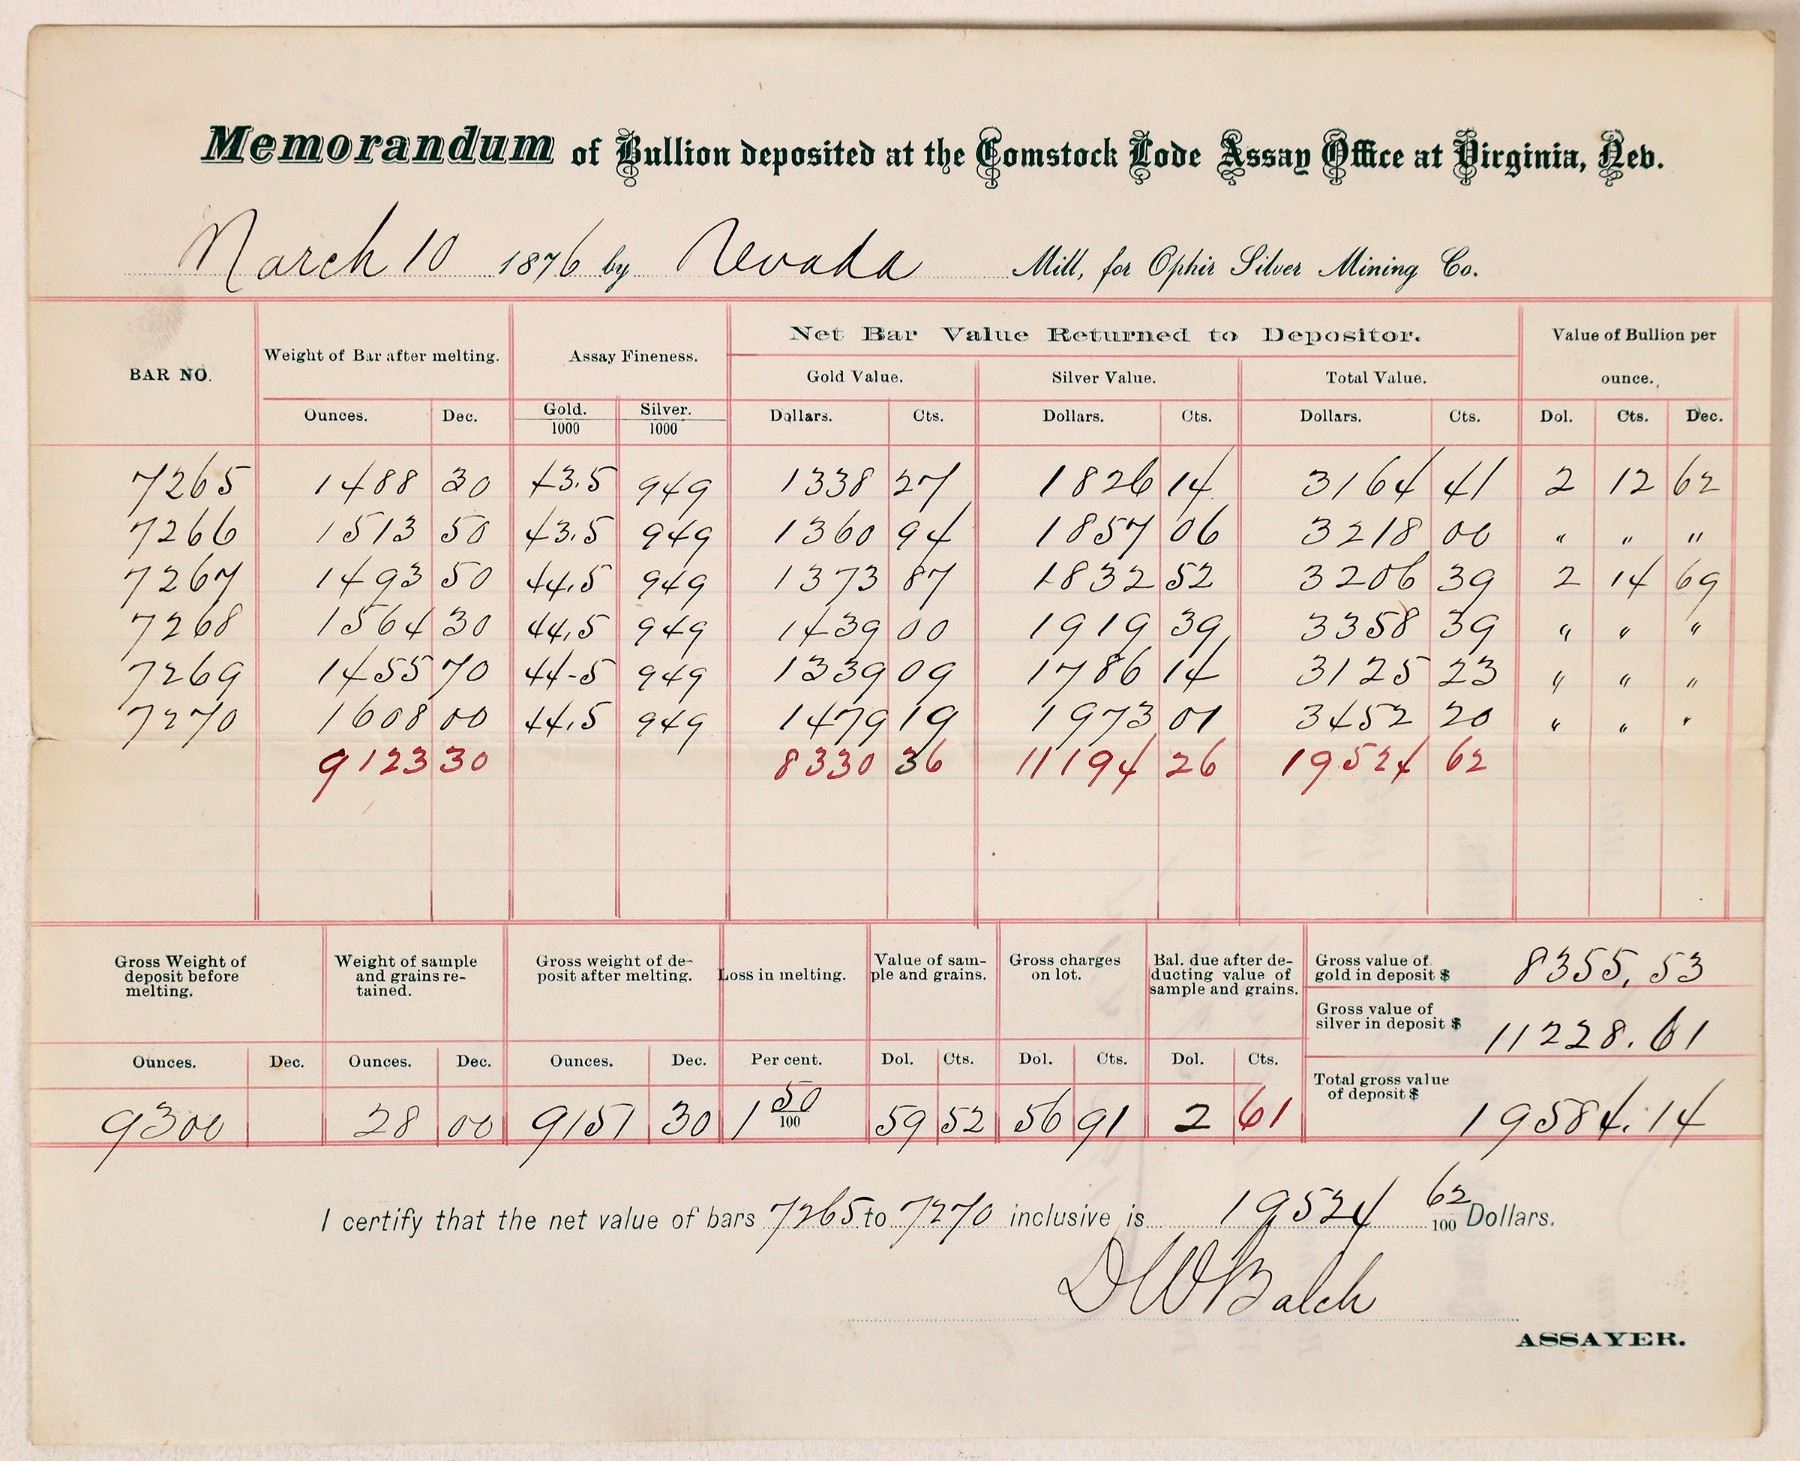 Memorandum of Bullion deposited at the Comstock Lode Assay Office at Virginia, Nev.
March 10 1876 by Nevada Mill, for Ophir Silver Mining Co.
BAR NO. Weight of Bar after melting. Assay Fineness. Net Bar Value Returned to Depositor. Value of Bullion per ounce.
Gold Value. Silver Value. Total Value.
Ounces. Dec. Gold. 1000 Silver. 1000 Dollars. Cts. Dollars. Cts. Dollars. Cts. Dol. Cts. Dec.
7265 1488 30 43.5 949 1338 27 1826 14 3164 41 2 12 62
7266 1513 50 43.5 949 1360 94 1857 06 3218 00 " " "
7267 1493 50 44.5 949 1373 87 1832 52 3206 39 2 14 69
7268 1564 30 44.5 949 1439 00 1919 39 3358 39 " " "
7269 1455 70 44-5 949 1339 09 1786 14 3125 23 " " "
7270 1608 00 44.5 949 1479 19 1973 01 3452 20 " " "
9123 30 8330 36 11194 26 19524 62
Gross Weight of deposit before melting. Weight of sample and grains retained. Gross weight of deposit after melting. Loss in melting. Value of sample and grains. Gross charges on lot. Bal. due after deducting value of sample and grains.
Gross value of gold in deposit $ 8355.53
Gross value of silver in deposit $ 11228.61
Ounces. Dec. Ounces. Dec. Ounces. Dec. Per cent. Dol. Cts. Dol. Cts. Dol. Cts.
9300 28 00 9151 30 1 50/100 59 52 56 91 2 61
Total gross value of deposit $ 19584.14
I certify that the net value of bars 7265 to 7270 inclusive is 19524 62/100 Dollars.
D W Balch
ASSAYER.